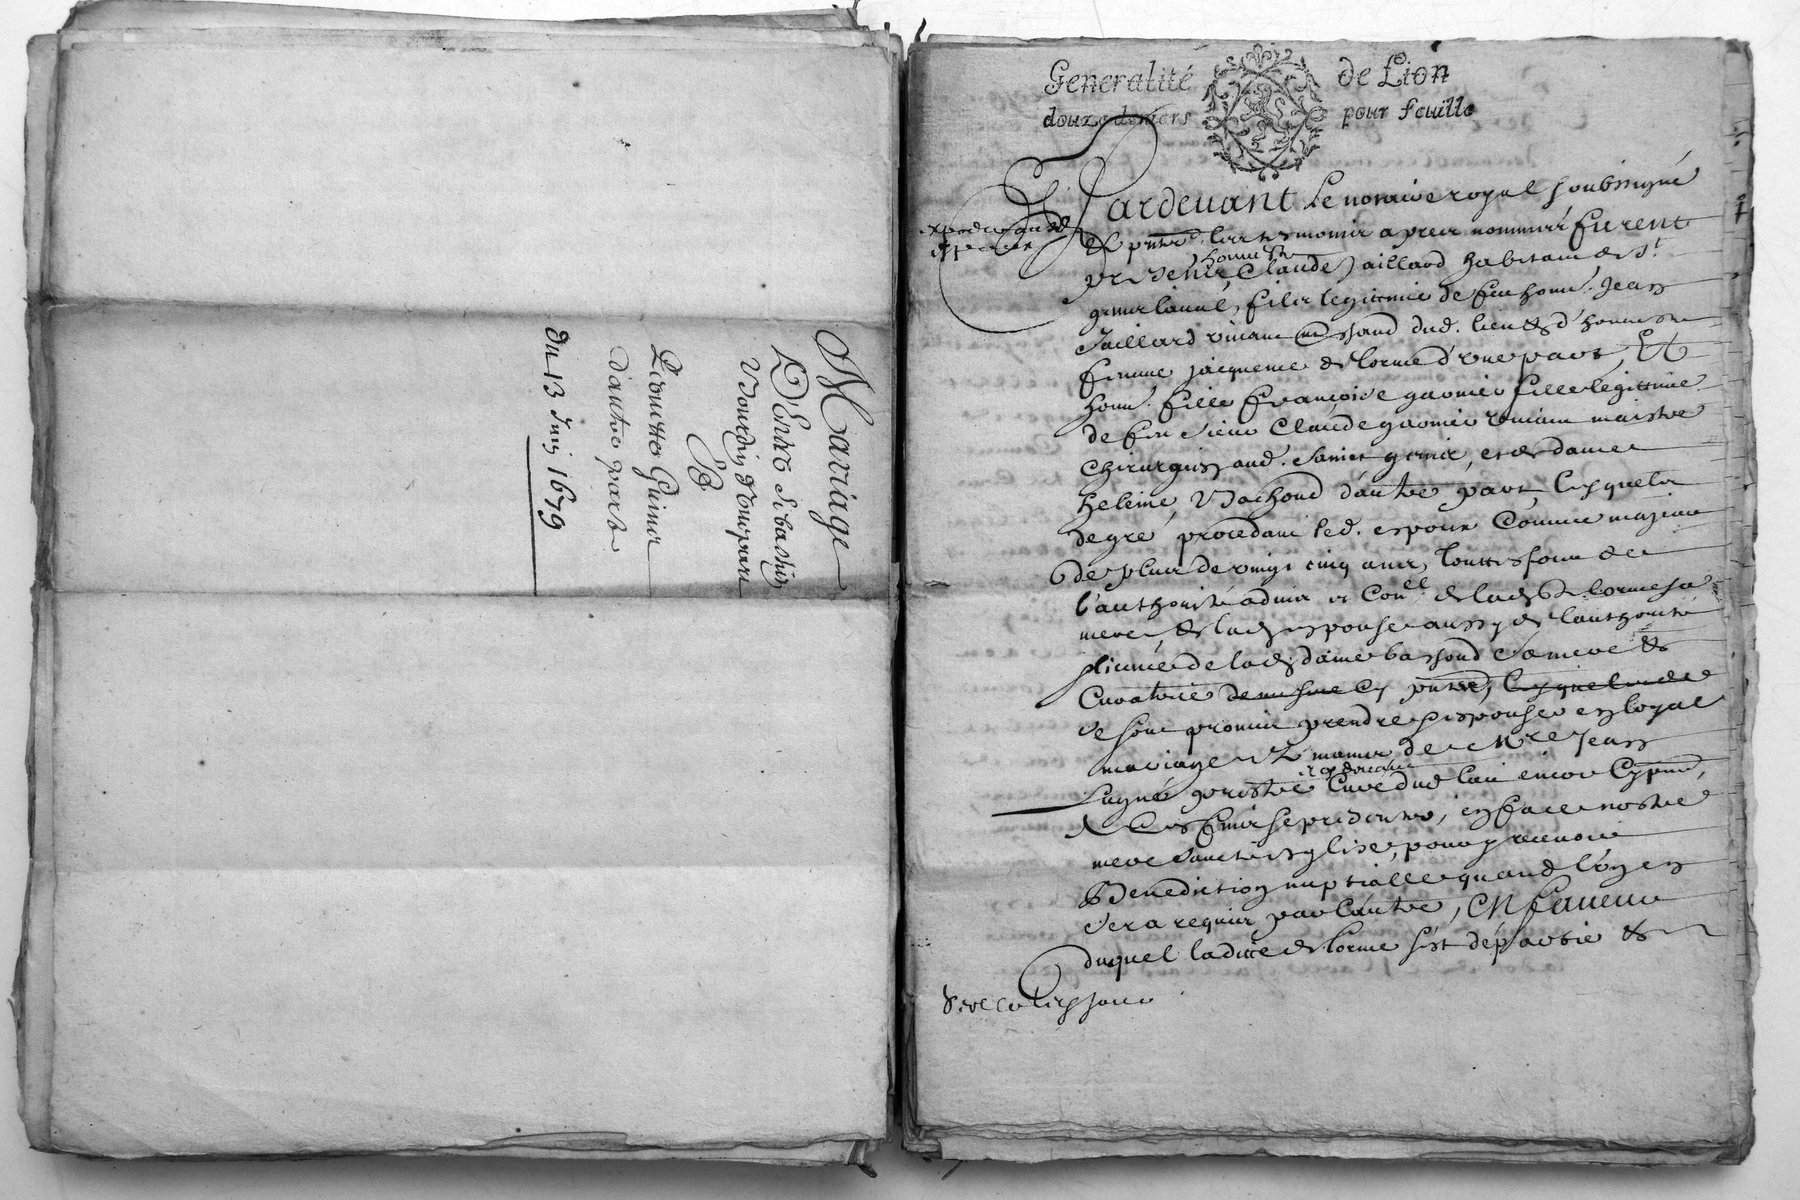 Mariage
D'Enne Sibastin
Vourdin d'Une part
Et
Pierrette Guinir
d'autre part
du 13 Juin 1679
Generalité de Lion
douze deniers pour feuille
Pardeuant Le notaire royal soubsigné
& pntz. les tesmoins apres nommés furent
pntz honneste Claude Jaillard habitant de St
fils legittime de feu honn. Jean
Jaillard viuant marchand dud. lieu & d'honneste
femme jacqueme de lorme d'une part, Et
honn. fille françoise garnier fille legittime
de feu sieur Claude garnier viuant maistre
Chirurgien aud. Sainct, et de dame
heleine Bachoud d'autre part, lesquels
de gré procedant led. espoux Comme majeur
de plus de vingt cinq ans, touttesfois de
l'authorité aduis et Con.el de lad. De lorme sa
mere, & lad. espouse aussy de l'authorité
licence de lad. dame bachoud sa mere &
Curatrice
se sont promis prendre & espouser en loyal
mariage de Mre Jean
prestre Curé dud. lieu
& se presenter, en face nostre
mere Saincte esglise, pour y receuoir
Benediction nuptialle quand l'vn en
sera requis par l'autre, En faueur
duquel ladite de lorme s'est départie &